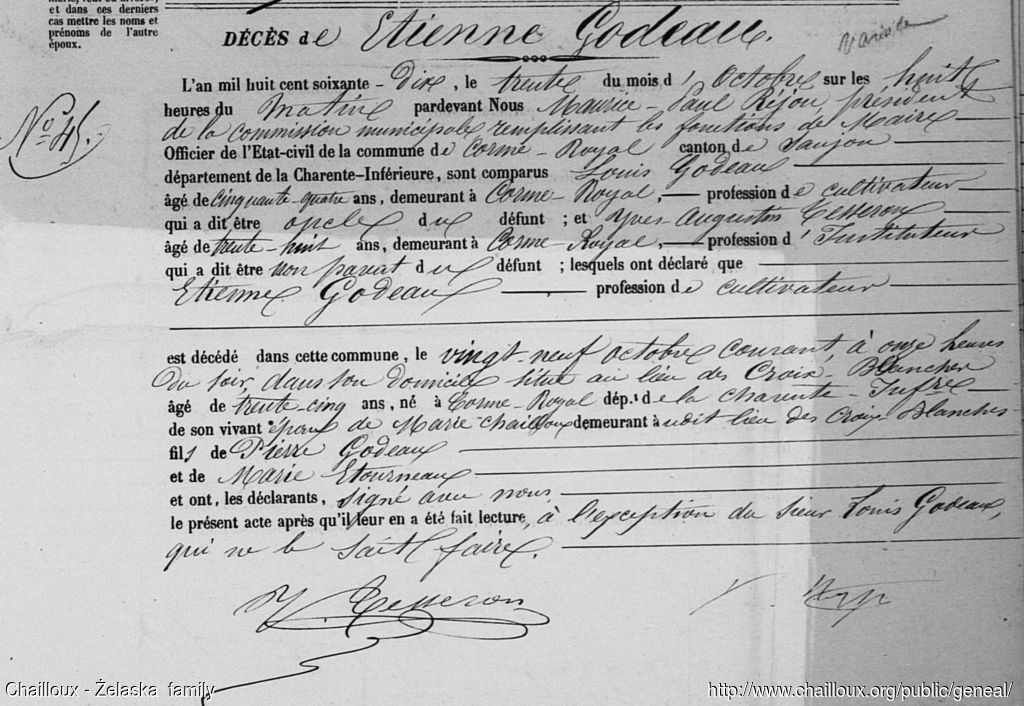 et dans ces derniers
cas mettre les noms et
prénoms de l'autre
époux.
DÉCÈS de Etienne Godeau.
N° 45.
L'an mil huit cent soixante-Dix, le trente du mois d'Octobre sur les huit
heures du Matin pardevant Nous Maurice-Paul Réjou, président
de la commission municipale remplissant les fonctions de Maire
Officier de l'Etat-civil de la commune de Corme-Royal canton de Saujon
département de la Charente-Inférieure, sont comparus Louis Godeau
âgé de cinquante-quatre ans, demeurant à Corme-Royal, profession de cultivateur
qui a dit être oncle du défunt ; et Yves Augustin Tesseron
âgé de trente-huit ans, demeurant à Corme-Royal, profession d'Instituteur
qui a dit être non parent du défunt ; lesquels ont déclaré que
Etienne Godeau profession de cultivateur
est décédé dans cette commune, le vingt-neuf octobre courant, à onze heures
du soir, dans son domicile situé au lieu des Croix-Blanches
âgé de trente-cinq ans, né à Corme-Royal dép.t de la Charente-Infre
de son vivant époux de Marie Chailloux demeurant à udit lieu des Croix-Blanches
fils de Pierre Godeau
et de Marie Etourneau
et ont, les déclarants, signé avec nous
le présent acte après qu'il leur en a été fait lecture, à l'exception du sieur Louis Godeau,
qui ne le sait faire.
Y. Tesseron
Chailloux - Żelaska family
http://www.chailloux.org/public/geneal/